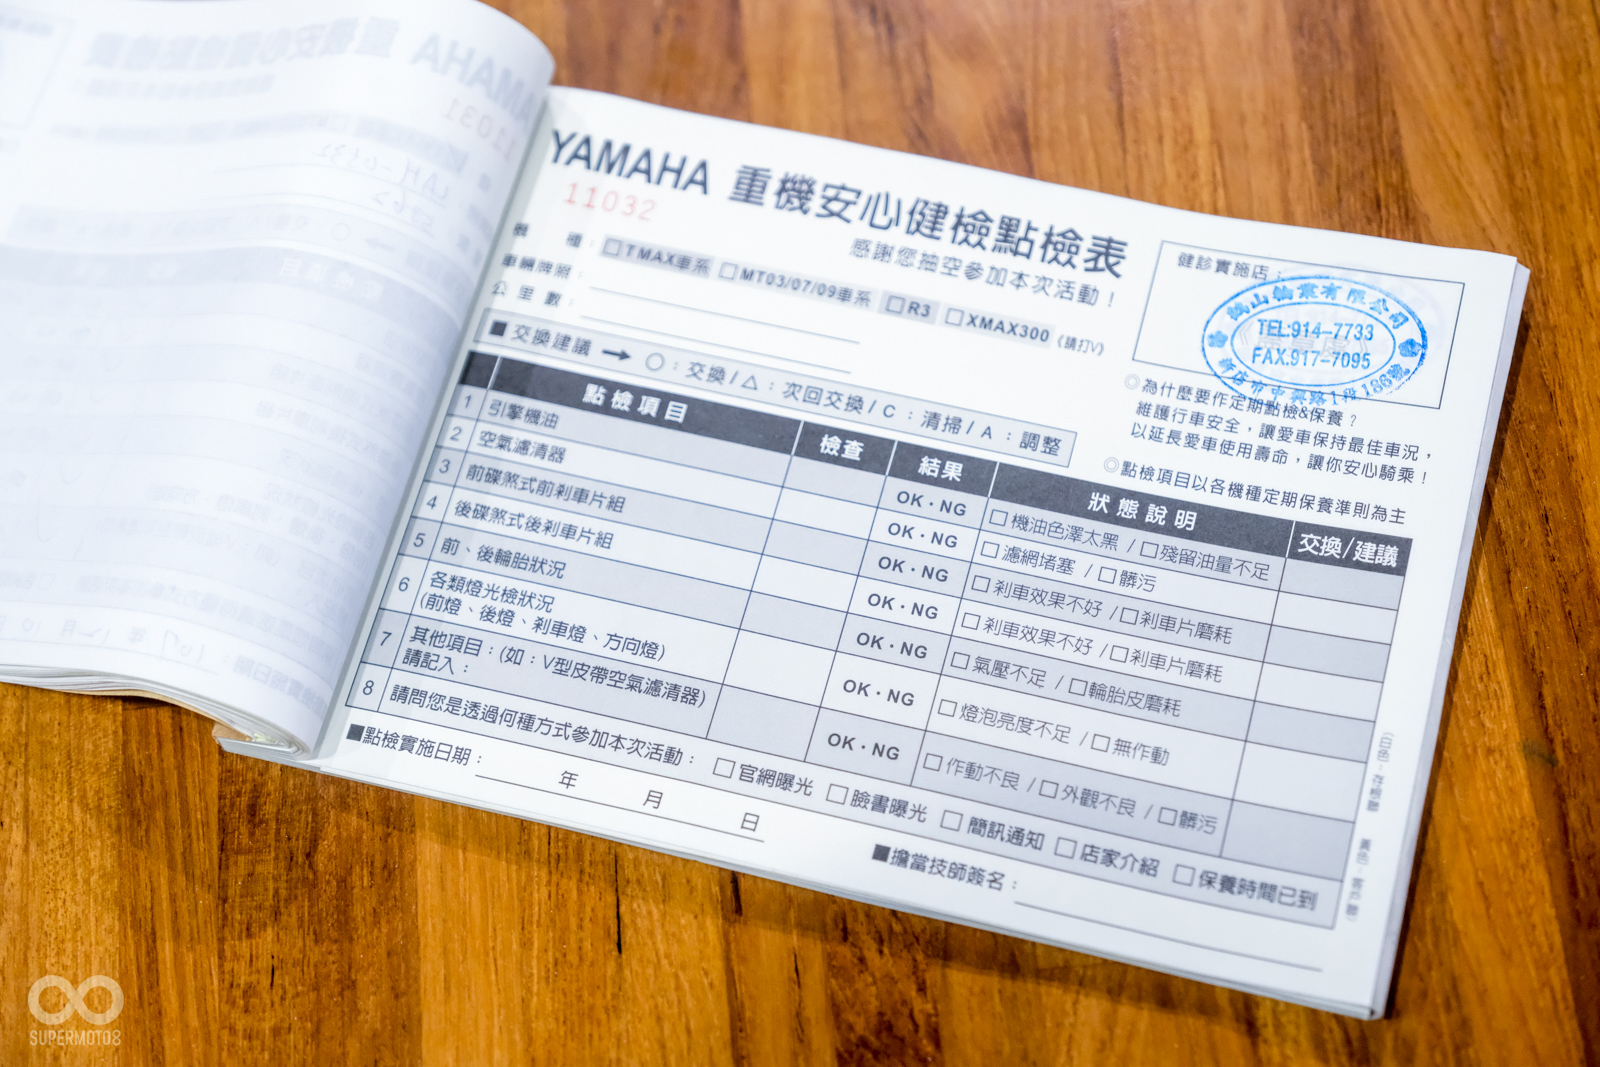 YAMAHA 重機安心健檢點檢表
11032
感謝您抽空參加本次活動！
種：□TMAX車系 □MT03/07/09車系 □R3 □XMAX300 (請打V)
車輛牌照：
公里數：
健診實施店：
山輪業有限公司
TEL:914-7733
FAX:917-7095
新店市中興路1段186號
■交換建議 → ○：交換/△：次回交換/C：清掃/A：調整
◎為什麼要作定期點檢&保養？
維護行車安全，讓愛車保持最佳車況，
以延長愛車使用壽命，讓你安心騎乘！
◎點檢項目以各機種定期保養準則為主
點檢項目 檢查 結果 狀態說明 交換/建議
1 引擎機油 OK・NG □機油色澤太黑 / □殘留油量不足
2 空氣濾清器 OK・NG □濾網堵塞 / □髒污
3 前碟煞式前剎車片組 OK・NG □剎車效果不好 / □剎車片磨耗
4 後碟煞式後剎車片組 OK・NG □剎車效果不好 / □剎車片磨耗
5 前、後輪胎狀況 OK・NG □氣壓不足 / □輪胎皮磨耗
6 各類燈光檢狀況
(前燈、後燈、剎車燈、方向燈) OK・NG □燈泡亮度不足 / □無作動
7 其他項目：(如：V型皮帶空氣濾清器)
請記入： OK・NG □作動不良 / □外觀不良 / □髒污
8 請問您是透過何種方式參加本次活動： □官網曝光 □臉書曝光 □簡訊通知 □店家介紹 □保養時間已到
■點檢實施日期： 年 月 日
■擔當技師簽名：
(白色：存根聯 黃色：客戶聯)
SUPERMOTO8